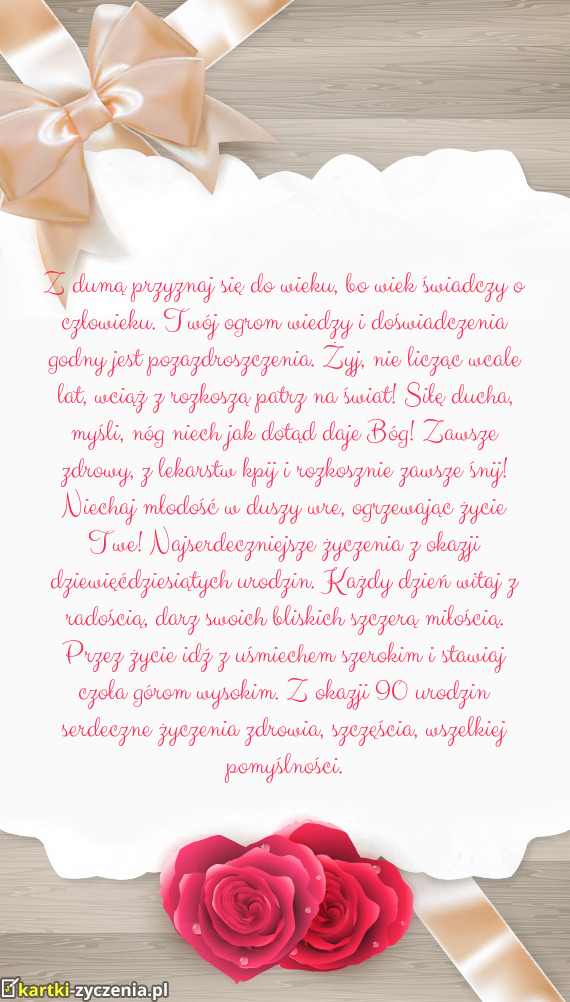 Z dumą przyznaj się do wieku, bo wiek świadczy o
człowieku. Twój ogrom wiedzy i doświadczenia
godny jest pozazdroszczenia. Żyj, nie licząc wcale
lat, wciąż z rozkoszą patrz na świat! Siłę ducha,
myśli, nóg niech jak dotąd daje Bóg! Zawsze
zdrowy, z lekarstw kpij i rozkosznie zawsze śnij!
Niechaj młodość w duszy wre, ogrzewając życie
Twe! Najserdeczniejsze życzenia z okazji
dziewięćdziesiątych urodzin. Każdy dzień witaj z
radością, darz swoich bliskich szczerą miłością.
Przez życie idź z uśmiechem szerokim i stawiaj
czoła górom wysokim. Z okazji 90 urodzin
serdeczne życzenia zdrowia, szczęścia, wszelkiej
pomyślności.
kartki-zyczenia.pl